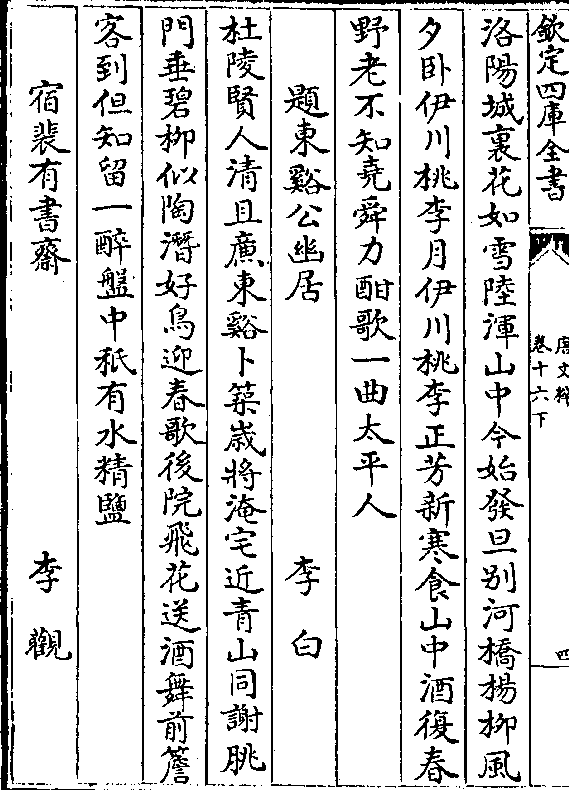 欽定四庫全書
唐文粹
卷十六下
四
洛陽城裏花如雪陸渾山中今始發旦别河橋楊栁風
夕卧伊川桃李月伊川桃李正芳新寒食山中酒復春
野老不知堯舜力酣歌一曲太平人
題東谿公幽居　李白
杜陵賢人清且㢘東谿卜築嵗將淹宅近青山同謝朓
門垂碧栁似陶潛好鳥迎春歌後院飛花送酒舞前簷
客到但知留一醉盤中秪有水精鹽
宿裴有書齋　李觀